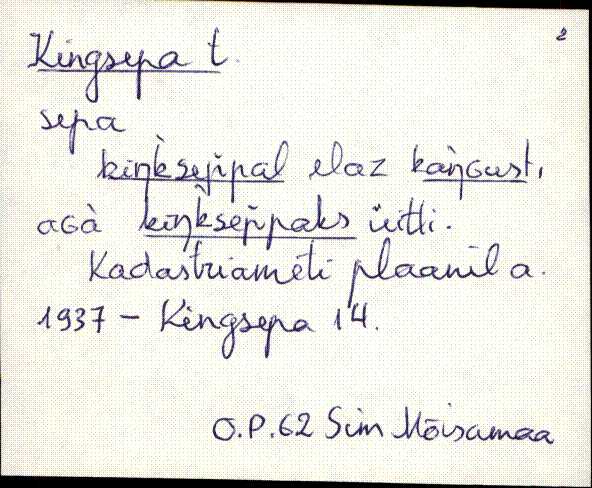 2
Kingsepa t.
sepa
kiŋ̀ksep̆pal elaz kaŋ̀Gust,
aGà kiŋ̀ksep̆paks üitti.
Kadastriameti plaanil a.
1937 – Kingsepa 14.
O.P.62 Sim Mõisamaa